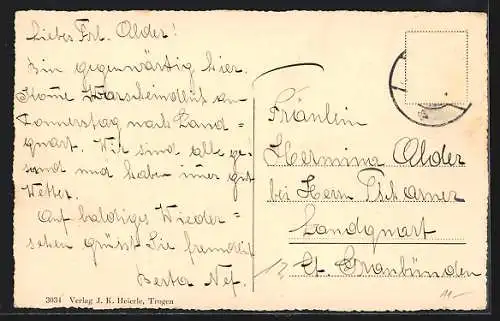 Liebes Frl. Alder!
Bin gegenwärtig hier.
Kome Warscheinlich am
Donnerstag nach Land=
quart. Wir sind alle ge=
sund und haben imer gut
Wetter.
Auf baldiges Wieder=
sehen grüsst Sie freundlich
Berta Nef.
Fräulein
Hermina Alder
bei Herrn Tscharner
Landquart
Ct. Graubünden
3034 Verlag J. K. Heierle, Trogen